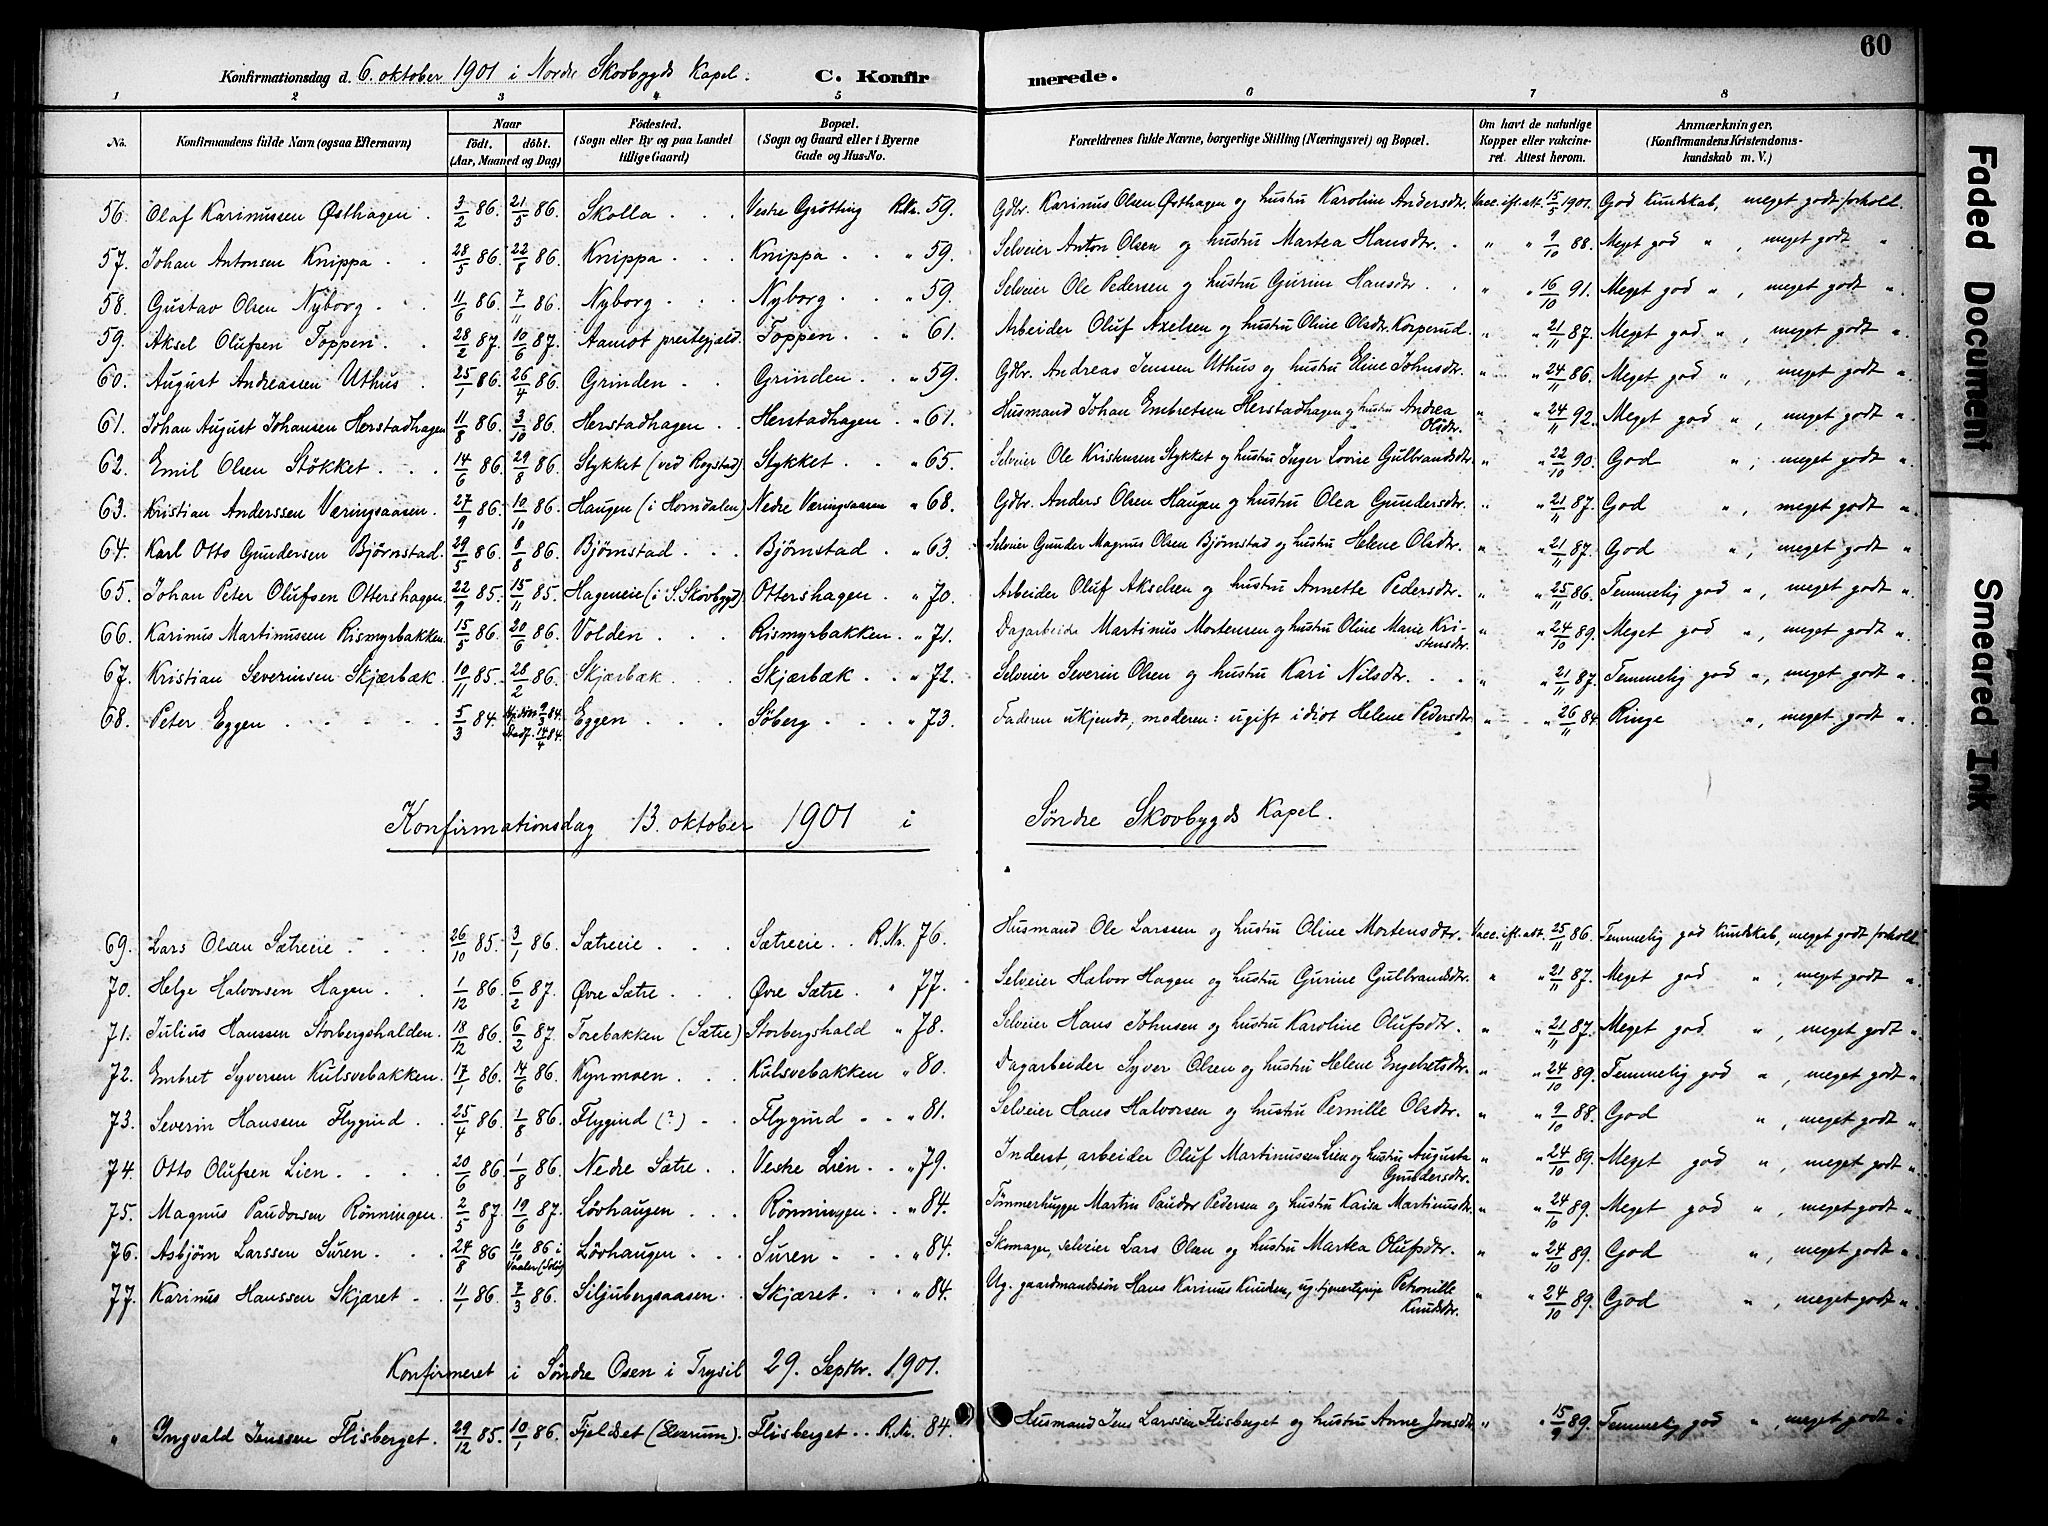 60
Konfirmationsdag d. 6. oktober 1901 i Nordre Skovbygds Kapel. C. Konfirmerede.
1 2 3 4 5 6 7 8
No. Konfirmandens fulde Navn (ogsaa Efternavn) Naar født. døbt. (Aar, Maaned og Dag) Fødested. (Sogn eller By og paa Landet tillige Gaard) Bopæl. (Sogn og Gaard eller i Byerne Gade og Hus-No. Forældrenes fulde Navne, borgerlige Stilling (Næringsvei) og Bopæl. Om havt de naturlige Kopper eller vakcineret. Attest herom. Anmærkninger. (Konfirmandens Kristendomskundskab m. V.)
56. Olaf Karinussen Østhagen. 3/2 86. 21/5 86. Skolla Vestre Grötting R.Nr. 59. Gdbr. Karinus Olsen Østhagen og hustru Karoline Andersdtr. Vacc. ifl. att. 15/5 1901. God kundskab, meget godt forhold.
57. Johan Antonsen Knippa 28/5 86. 22/8 86. Knippa Knippa " 59. Selveier Anton Olsen og hustru Martea Hansdtr. " " 9/10 88. Meget god ", meget godt "
58. Gustav Olsen Nyborg 11/6 86. 7/11 86. Nyborg Nyborg " 59. Selveier Ole Pedersen og hustru Gurine Hansdtr. " " 16/10 91. Meget god ", meget godt "
59. Aksel Olufsen Toppen 28/2 87. 10/6 87. Aamot prestegjæld. Toppen " 61. Arbeider Oluf Axelsen og hustru Oline Olsdtr. Korperud. " " 21/11 87. Meget god ", meget godt "
60. August Andreassen Uthus 25/1 86. 26/4 86. Grinden Grinden " 59. Gdbr. Andreas Jenssen Uthus og hustru Eline Johnsdtr. " " 24/11 86. Meget god ", meget godt "
61. Johan August Johansen Herstadhagen 11/8 86. 3/10 86. Herstadhagen Herstadhagen " 61. Husmand Johan Embretsen Herstadhagen og hustru Andrea Olsdtr. " " 24/11 92. Meget god ", meget godt "
62. Emil Olsen Støkket 14/6 86. 29/8 86. Stykket (ved Rogstad) Stykket " 65. Selveier Ole Kristensen Stykket og hustru Inger Lovise Gulbrandsdtr. " " 22/10 90. God ", meget godt "
63. Kristian Anderssen Væringsaasen. 27/9 86. 10/10 86. Haugen (i Horndalen) Nedre Væringsaasen " 68. Gdbr. Anders Olsen Haugen og hustru Olea Gundersdtr. " " 21/11 87. God ", meget godt "
64. Karl Otto Gundersen Bjørnstad. 29/5 86. 8/8 86. Bjørnstad Bjørnstad " 63. Selveier Gunder Magnus Olsen Bjørnstad og hustru Helene Olsdtr. " " 21/11 87. God ", meget godt "
65. Johan Peter Olufsen Ottershagen. 22/9 85. 15/11 85. Hageneie (i S. Skovbygd). Ottershagen " 70. Arbeider Oluf Akselsen og hustru Annette Pedersdtr. " " 25/11 86. Temmelig god ", meget godt "
66. Karinus Martinussen Rismyrbakken. 15/5 86. 20/6 86. Volden Rismyrbakken " 71. Dagarbeider Martinus Mortensen og hustru Oline Marie Kristensdtr. " " 24/10 89. Meget god ", meget godt "
67. Kristian Severinsen Skjærbæk 10/11 85. 28/2 86. Skjærbæk Skjærbæk " 72. Selveier Severin Olsen og hustru Kari Nilsdtr. " " 21/11 87. Temmelig god ", meget godt "
68. Peter Eggen 5/3 84. Hj. döbt 9/3 84. Stadf. 14/4 84. Eggen Søberg " 73. Faderen ukjendt, moderen: ugift idiot Helene Pedersdtr. " " 26/11 84 Ringe ", meget godt "
Konfirmationsdag 13. oktober 1901 i Søndre Skovbygds Kapel.
69. Lars Olsen Sætreeie 26/10 85. 3/1 86. Sætreeie Sætreeie R.Nr. 76. Husmand Ole Larssen og hustru Oline Mortensdtr. Vacc. ifl. att. 25/11 86. Temmelig god kundskab, meget godt forhold.
70. Helge Halvorsen Hagen 1/12 86. 6/2 87. Øvre Sætre Øvre Sætre " 77. Selveier Halvor Hagen og hustru Gurine Gulbrandsdtr. " " 21/11 87. Meget god ", meget godt "
71. Julius Hanssen Storbergshalden. 18/12 86. 6/2 87. Torebakken (Sætre) Storbergshald " 78. Selveier Hans Johnsen og hustru Karoline Olufsdtr. " " 21/11 87. Meget god ", meget godt "
72. Embret Syversen Kulsvebakken. 17/1 86. 14/6 86. Kynmoen Kulsvebakken " 80. Dagarbeider Syver Olsen og hustru Helene Engebretsdtr. " " 24/10 89. Temmelig god ", meget godt "
73. Severin Hanssen Flygind. 25/4 86. 1/8 86. Flygind (?) Flygind " 81. Selveier Hans Halvorsen og hustru Pernille Olsdtr. " " 9/10 88. God ", meget godt "
74. Otto Olufsen Lien 20/6 86. 1/8 86. Nedre Sætre Vestre Lien " 79. Inderst, arbeider Oluf Martinussen Lien og hustru Augusta Gundersdtr. " " 24/10 89. Meget god ", meget godt "
75. Magnus Paudorsen Rönningen. 2/5 87. 19/6 87. Lövhaugen Rönningen " 84. Tömmerhugger Martin Paudor Pedersen og hustru Kaisa Martinusdtr. " " 24/10 89. Meget god ", meget godt "
76. Asbjörn Larssen Suren 24/8 86 10/10 86 i Vaaler (Solör) Lövhaugen Suren " 84. Skomager, selveier Lars Olsen og hustru Martea Olufsdtr. " " 24/10 89. God ", meget godt "
77. Karinus Hanssen Skjæret 11/1 86. 7/3 86. Siljubergsaasen Skjæret " 84. Ug. gaardmandssön Hans Karinus Knudsen, ug. tjenestepige Petronille Knudsdtr. " " 24/10 89. God ", meget godt "
Konfirmeret i Søndre Osen i Trysil 29. Septbr. 1901.
" Yngvald Jenssen Flisberget. 29/12 85. 10/1 86. Fjeldset (Elverum). Flisberget R.Nr. 84. Husmand Jens Larssen Flisberget og hustru Anne Jonsdtr. " " 15/9 89. Temmelig god ", meget godt "
Faded Document
Smeared Ink